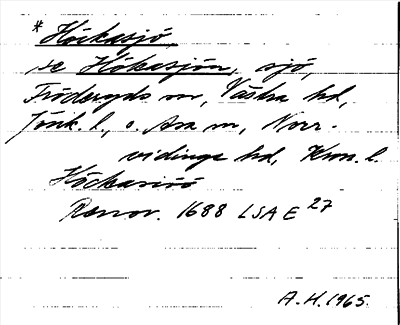 * Höckasjö,
se Hökasjön, sjö,
Fröderyds sn, Västra hd,
Jönk. l., o. Asa sn, Norr-
vidinge hd, Kron. l.
Höckasiöö
Renov. 1688 LSA E 27
A.H. 1965.